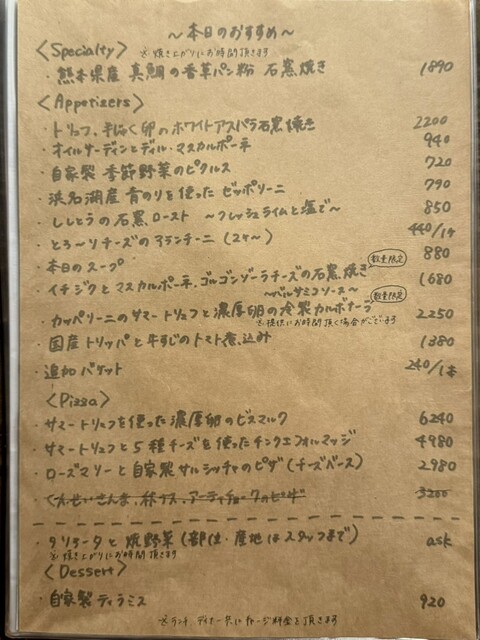 ～本日のおすすめ～
〈Specialty〉 ※焼き上がりにお時間頂きます
・熊本県産 真鯛の香草パン粉 石窯焼き 1890
〈Appetizers〉
・トリュフ、半じゅく卵のホワイトアスパラ石窯焼き 2200
・オイルサーディンとディル・マスカルポーネ 940
・自家製 季節野菜のピクルス 720
・浜名湖産 青のりを使った ゼッポリーニ 790
・ししとうの石窯ロースト ～フレッシュライムと塩で～ 850
・とろ～りチーズのアランチーニ (2ヶ～) 440/1ケ
・本日のスープ 数量限定 880
・イチジクとマスカルポーネ、ゴルゴンゾーラチーズの石窯焼き 1680
～バルサミコソース～ 数量限定
・カッペリーニのサマートリュフと濃厚卵の冷製カルボナーラ 2250
※提供にお時間頂く場合がございます
・国産トリッパと牛すじのトマト煮込み 1380
・追加バケット 240/1本
〈Pizza〉
・サマートリュフを使った濃厚卵のビスマルク 6240
・サマートリュフと5種チーズを使ったチンクエフォルマッジ 4980
・ローズマリーと自家製サルシッチャのピザ (チーズベース) 2980
3200
・タリアータと焼野菜 (部位・産地はスタッフまで) ask
※焼き上がりにお時間頂きます
〈Dessert〉
・自家製ティラミス 920
※ランチ、ディナー共にチャージ料金を頂きます